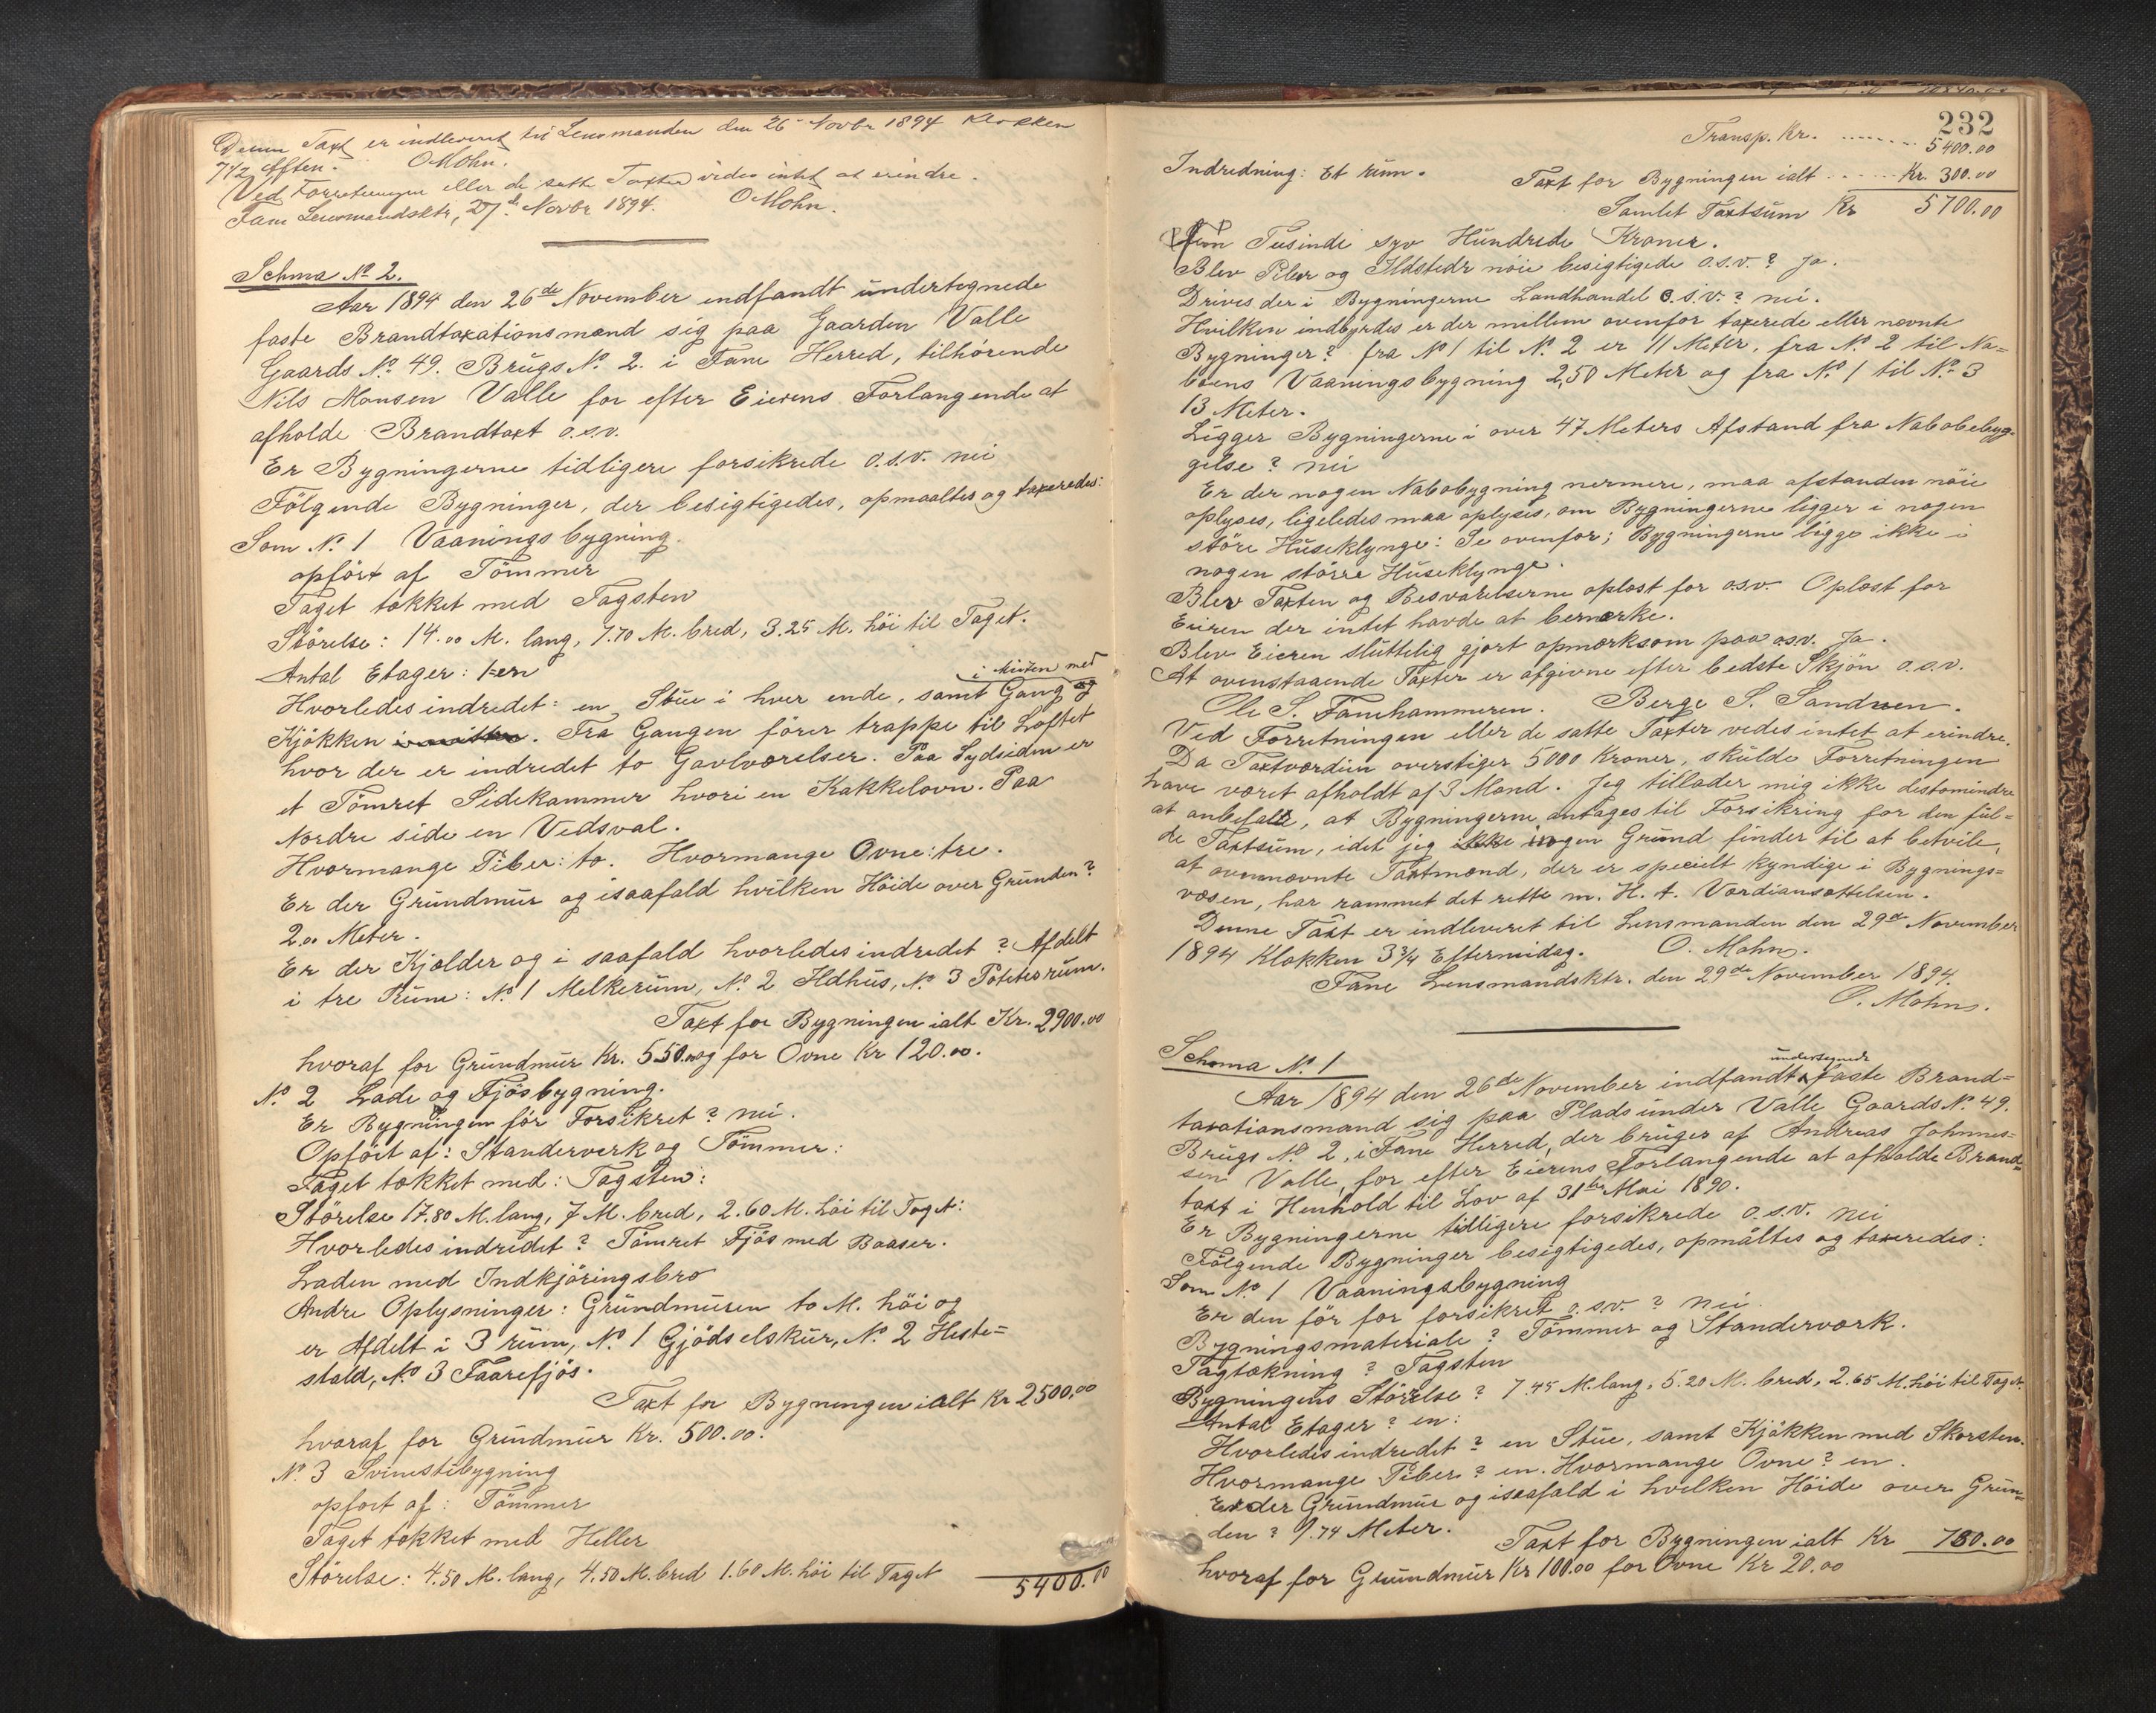 Denne Taxt er indleveret til Lensmanden den 26de Novbr 1894 Klokken
7 1/2 Aften. O Mohn.
Ved Forretningen eller de satte Taxter vides intet at erindre.
Fane Lensmandsktr, 27de Novbr 1894. O Mohn.
Schma No 2.
Aar 1894 den 26de November indfandt undertegnede
faste Brandtaxationsmænd sig paa Gaarden Valle
Gaards No 49. Brugs No 2. i Fane Herred, tilhörende
Nils Monsen Valle for efter Eierens Forlangende at
afholde Brandtaxt o.s.v.
Er Bygningerne tidligere forsikrede o.s.v. nei
Fölgende Bygninger, der besigtigedes, opmaaltes og taxeredes:
Som No 1 Vaaningsbygning.
opfört af Tömmer
Taget tækket med Tagsten
Störelse: 14.00 M. lang, 7.70 M. bred, 3.25 M. höi til Taget.
Antal Etager: 1-en
i Miden med
Hvorledes indredet: en Stue i hver ende, samt Gang og
Kjökken i midten. Fra Gangen förer trappe til Loftet
hvor der er indredet to Gavlværelser. Paa Sydsiden er
et Tömret Sidekammer hvori en Kakkelovn. Paa
Nordre side en Vedsval.
Hvormange Piber: to. Hvormange Ovne: tre.
Er der Grundmur og isaafald hvilken Höide over Grunden?
2.00 Meter.
Er der Kjælder og i saafald hvorledes indredet? Afdelt
i tre Rum: No 1 Melkerum, No 2 Ildhus, No 3 Poteterum.
Taxt for Bygningen ialt Kr. 2900.00
hvoraf for Grundmur Kr. 550.00 og for Ovne Kr 120.00.
No 2 Lade og Fjösbygning.
Er Bygningen för Forsikret? nei.
Opfört af: Standerverk og Tömmer:
Taget tækket med: Tagsten:
Störelse 17.80 M. lang, 7 M. bred, 2.60 M. höi til Taget:
Hvorledes indredet? Tömret Fjös med Baaser.
Laden med Indkjöringsbro
Andre Oplysninger: Grundmuren to M. höi og
er Afdelt i 3 rum, No 1 Gjödselskur, No 2 Heste=
stald, No 3 Faarefjös.
Taxt for Bygningen ialt Kr 2500.00
hvoraf for Grundmur Kr. 500.00.
No 3 Svinestibygning
opfört af: Tömmer
Taget tækket med Heller
Störelse: 4.50 M. lang, 4.50 M. bred 1.60 M. höi til Taget
5400.00
232
Transp. Kr. ........ 5400.00
Indredning: Et rum.
Taxt for Bygningen ialt ...... Kr. 300.00
Samlet Taxtsum Kr 5700.00
Fem Tusinde syv Hundrede Kroner.
Blev Piber og Ildstedr nöie besigtigede o.s.v.? Ja.
Drives der i Bygningerne Landhandel o.s.v.? nei.
Hvilken indbyrdes er der mellem ovenfor taxerede eller nævnte
Bygninger? fra No 1 til No. 2 er 11 Meter, fra No. 2 til Na=
boens Vaaningsbygning 2,50 Meter og fra No. 1 til No. 3
13 Meter.
Ligger Bygningerne i over 47 Meters Afstand fra Nabobebyg-
gelse? nei
Er der nogen Nabobygning nermere, maa afstanden nöie
oplyses, ligeledes maa oplyses, om Bygningerne ligger i nogen
störe Huseklynge: Se ovenfor; Bygningerne ligge ikke i
nogen större Huseklynge.
Blev Taxten og Besvarelserne oplæst for o.s.v. Oplæst for
Eieren der intet havde at bemærke.
Blev Eieren sluttelig gjort opmærksom paa o.s.v. Ja.
At ovenstaaende Taxter er afgivne efter bedste Skjön o.s.v.
Ole S. Fanehammeren. Berge S. Sandven.
Ved Forretningen eller de satte Taxter vedes intet at erindre.
Da Taxtværdien overstiger 5000 Kroner, skulde Forretningen
have været afholdt af 3 Mænd. Jeg tillader mig ikke destomindre
at anbefale, at Bygningerne antages til Forsikring for den ful=
de Taxtsum, idet jeg ikke nogen Grund finder til at betvile,
at ovennævnte Taxtmænd, der er specielt kyndige i Bygnings=
væsen, har rammet det rette m. H. t. Værdiansættelsen.
Denne Taxt er indleveret til Lensmanden den 29de November
1894 Klokken 3 3/4 Eftermidag. O. Mohn.
Fane Lensmandsktr. den 29de November 1894.
O. Mohn.
Schema No. 1
undertegnede
Aar 1894 den 26de November indfandt faste Brand=
taxationsmænd sig paa Plads under Valle Gaards No. 49.
Brugs No 2, i Fane Herred, der bruges af Andreas Johannes=
sen Valle, for efter Eierens Forlangende at afholde Brand=
taxt i Henhold til Lov af 31te Mai 1890.
Er Bygningerne tidligere forsikrede o.s.v. nei
Fölgende Bygninger besigtigedes, opmåltes og taxeredes:
Som No. 1 Vaaningsbygning
Er den för for forsikret o.s.v.? nei.
Bygningsmateriale? Tömmer og Standerværk.
Tagtækning? Tagsten
Bygningens Störrelse? 7.45 M. lang, 5.20 M. bred, 2.65 M. höi til Taget.
Antal Etager? en:
Hvorledes indredet? en Stue, samt Kjökken med Skorsten.
Hvormange Piber? en. Hvormange Ovne? en.
Er der Grundmur og isaafald i hvilken Höide over Grun=
den? 0.74 Meter.
Taxt for Bygningen ialt Kr 780.00
hvoraf for Grundmur Kr 100.00 for Ovne Kr 20.00